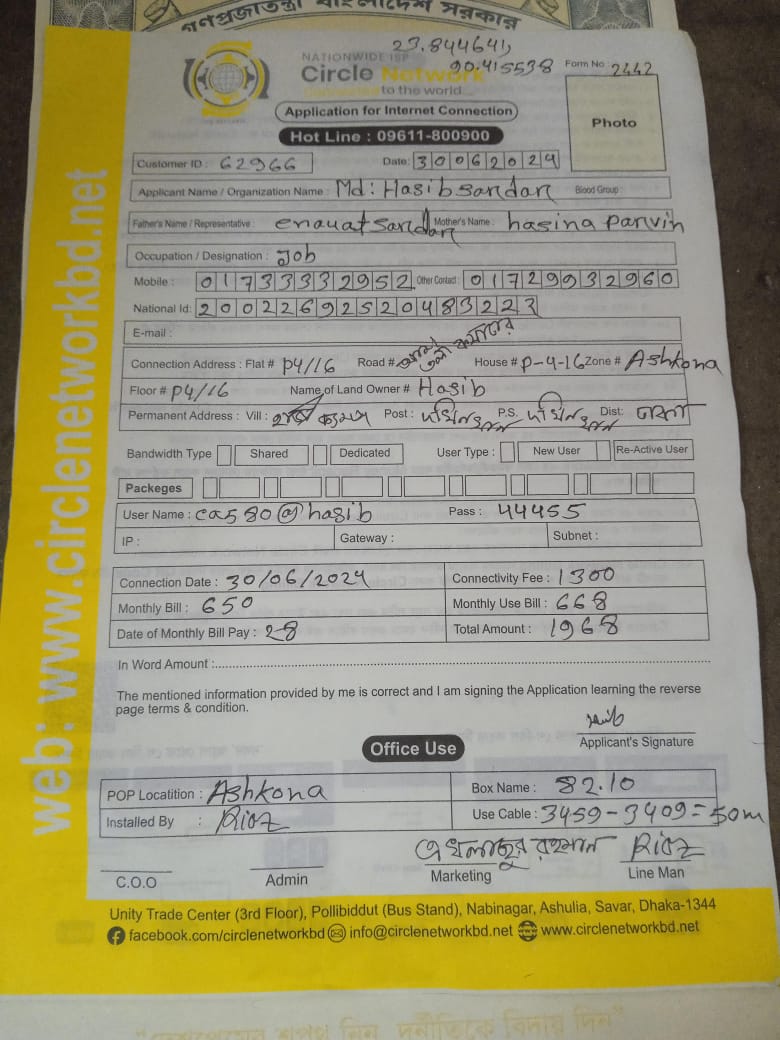 গণপ্রজাতন্ত্রী বাংলাদেশ সরকার
23.844641,
90.415538
NATIONWIDE ISP
Circle Network
Connected to the world...
Form No 2442
Application for Internet Connection
Photo
Hot Line : 09611-800900
Customer ID : 62966 Date: 30062024
Applicant Name / Organization Name : Md: Hasib sardar Blood Group :
Father's Name / Representative : enayat sardar Mother's Name : hasina parvin
Occupation / Designation : Job
Mobile : 01733332952 Other Contact : 01729932960
National Id: 20022692520483223
E-mail :
Connection Address : Flat # P4/16 Road # House # P-4-16 Zone # Ashkona
Floor # P4/16 Name of Land Owner # Hasib
Permanent Address : Vill : Post : P.S. Dist: ঢাকা
Bandwidth Type Shared Dedicated User Type : New User Re-Active User
Packeges
User Name : ca580@hasib Pass : 44455
IP : Gateway : Subnet :
Connection Date : 30/06/2024 Connectivity Fee : 1300
Monthly Bill : 650 Monthly Use Bill : 668
Date of Monthly Bill Pay : 28 Total Amount : 1968
In Word Amount :
The mentioned information provided by me is correct and I am signing the Application learning the reverse
page terms & condition.
Applicant's Signature
Office Use
POP Locatition : Ashkona Box Name : 82.10
Installed By : Riaz Use Cable : 3459-3409=50m
এখলাছুর রহমান Riaz
C.O.O Admin Marketing Line Man
Unity Trade Center (3rd Floor), Pollibiddut (Bus Stand), Nabinagar, Ashulia, Savar, Dhaka-1344
facebook.com/circlenetworkbd info@circlenetworkbd.net www.circlenetworkbd.net
web: www.circlenetworkbd.net
"দেশপ্রেমের শপথ নিন, দুর্নীতিকে বিদায় দিন"